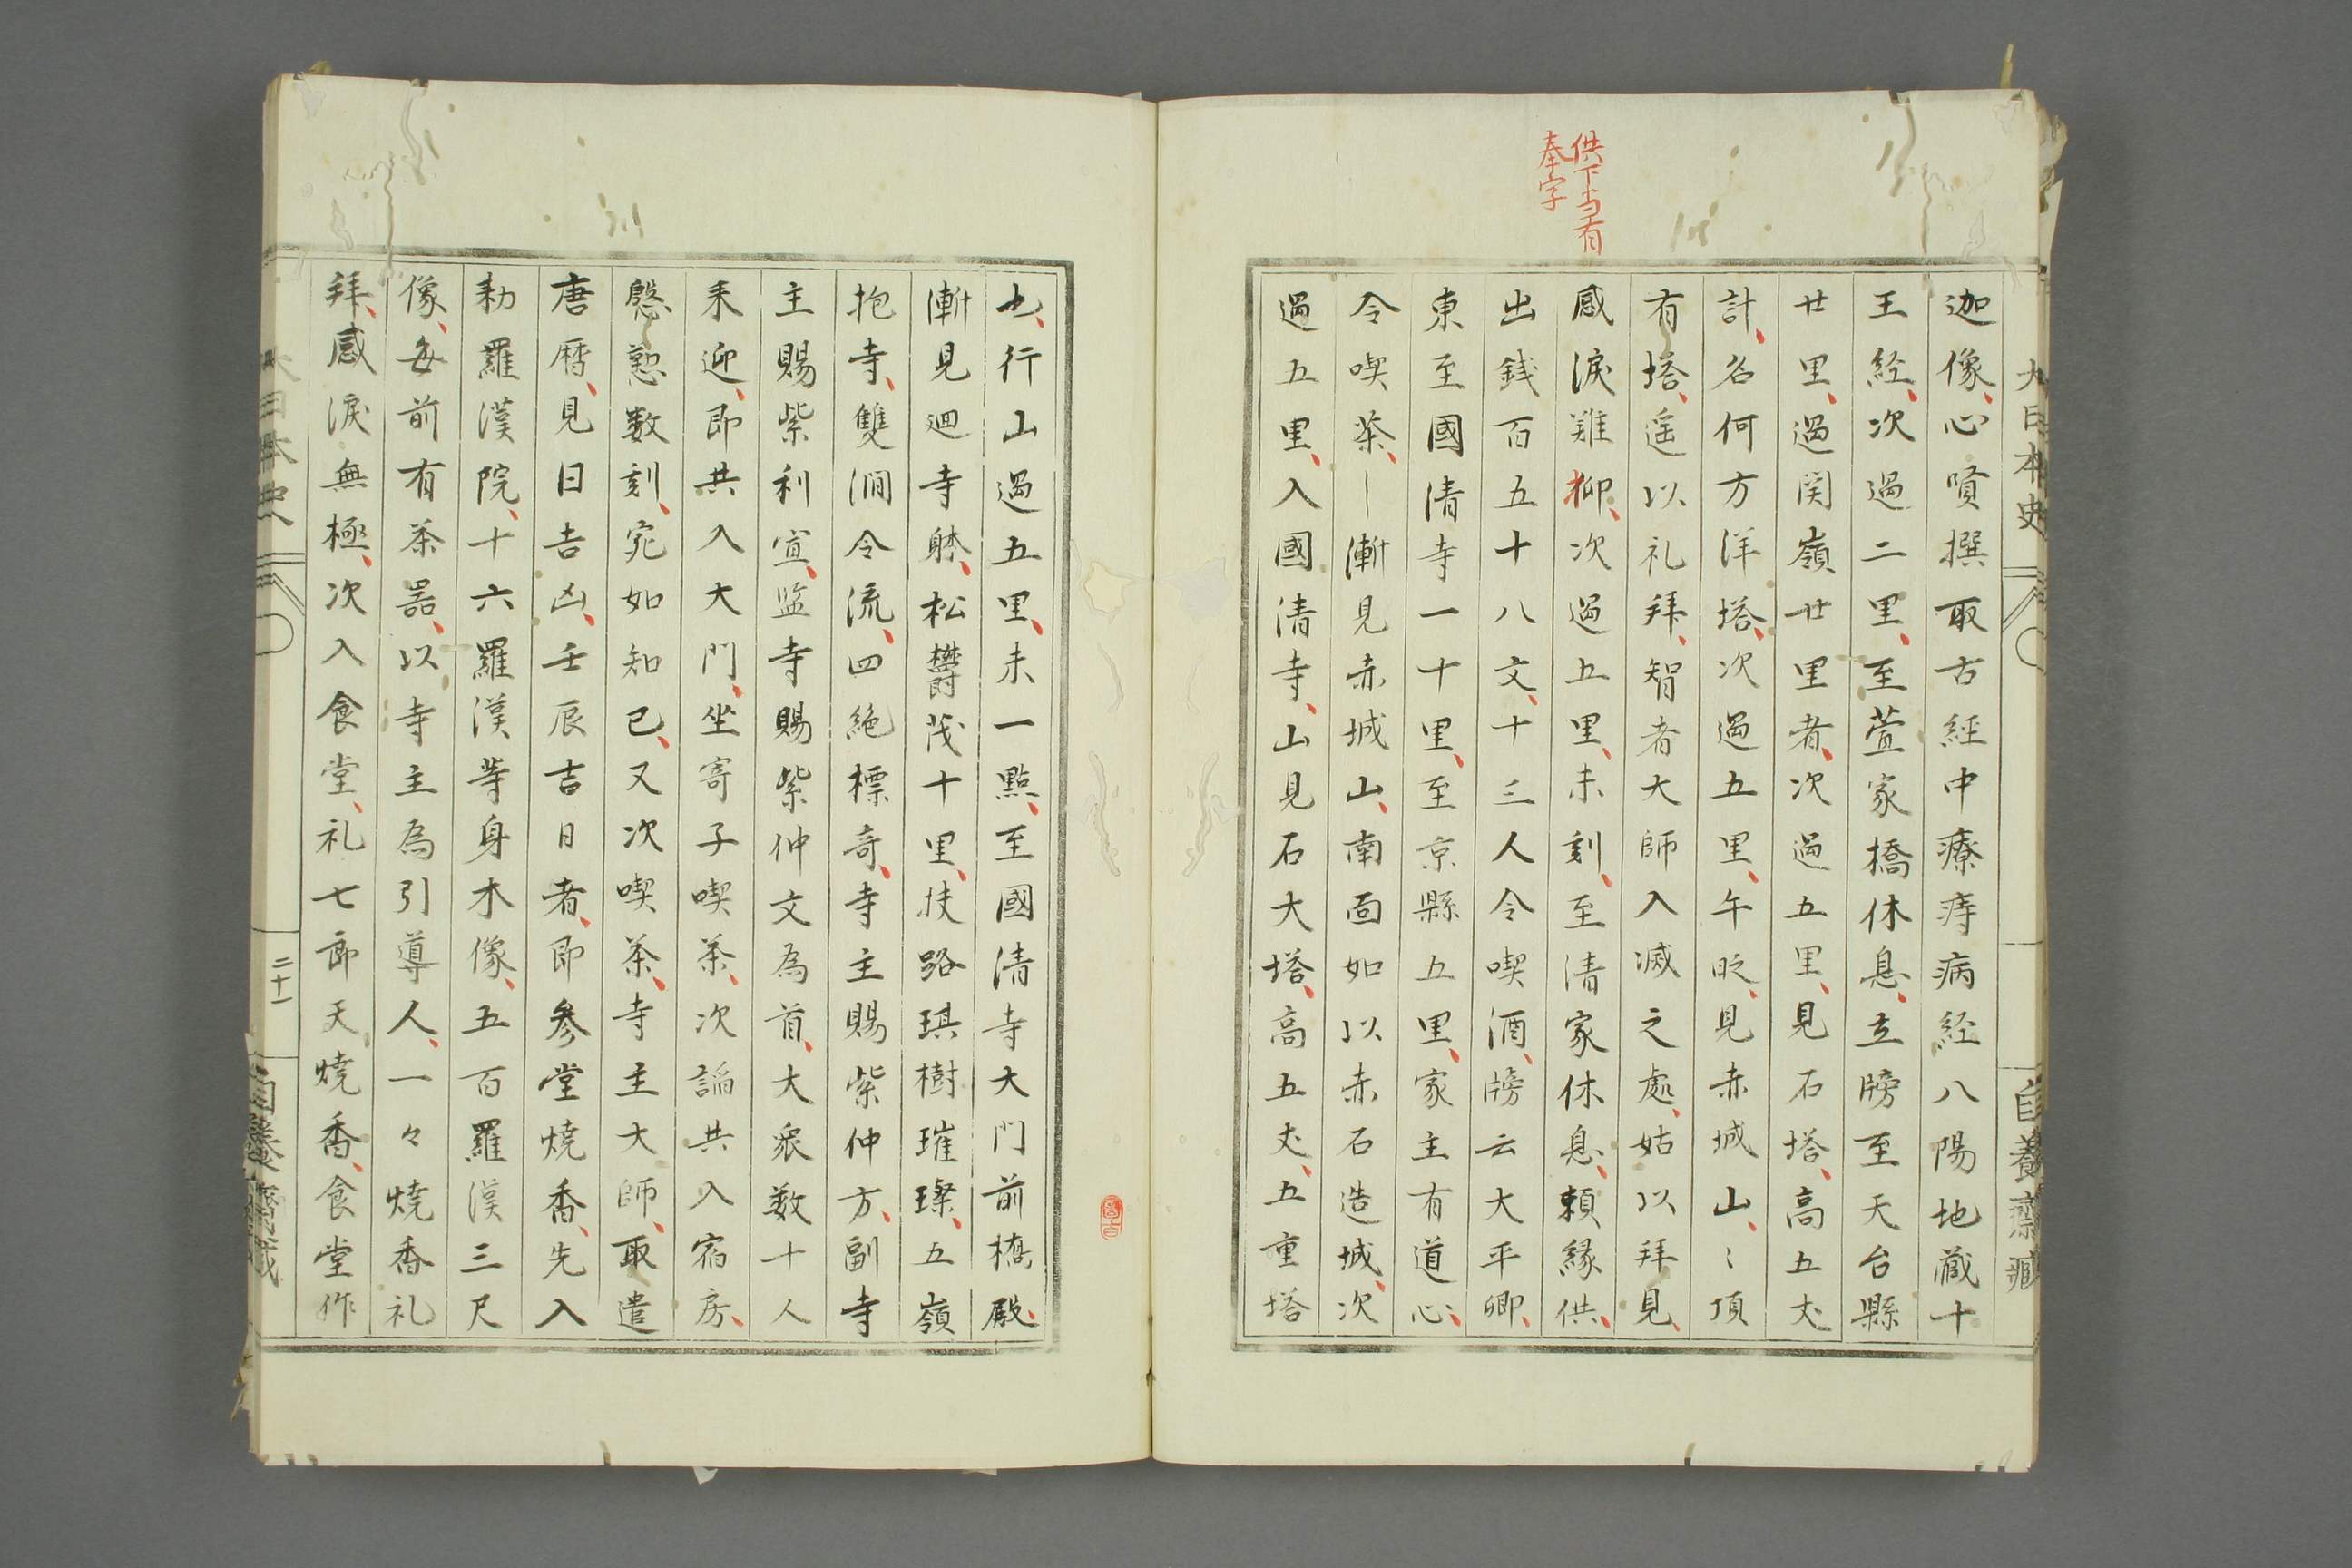 大日本史
自養齋藏
供下当有
奉字
迦像、心喷撰取古經中療痔病经八陽地藏十
王経、次過二里、至萱家橋休息、立牓至天台縣
廿里、過関嶺廿里者、次過五里、見石塔、高五丈
計、名何方洋塔、次過五里、午時、見赤城山、〻頂
有塔、遥以礼拜、智者大師入滅之處、姑以拜見、
感淚難抑、次過五里、未刻、至清家休息、頼縁供、
出銭百五十八文、十三人令喫酒、牓云大平卿、
東至國清寺一十里、至京縣五里、家主有道心、
令喫茶、漸見赤城山、南面如以赤石造城、次
過五里、入國清寺、山見石大塔、高五丈、五重塔
也、行山過五里、未一點、至國清寺大門前橋殿、
漸見廻寺躰、松欝茂十里、挾路琪樹璀璨、五嶺
抱寺、雙澗令流、四絶標奇、寺主賜紫仲方、副寺
主賜紫利宣、監寺賜紫仲文為首、大衆数十人
来迎、即共入大門、坐寄子喫茶、次謟共入宿房、
慇懃数刻、宛如知已、又次喫茶、寺主大師、取遣
唐暦、見日吉凶、壬辰吉日者、即参堂燒香、先入
勅羅漢院、十六羅漢等身木像、五百羅漢三尺
像、每前有茶器、以寺主為引導人、一々燒香礼
拜、感淚無極、次入食堂、礼七郎天燒香、食堂作
大日本史
二十一
自養齋藏